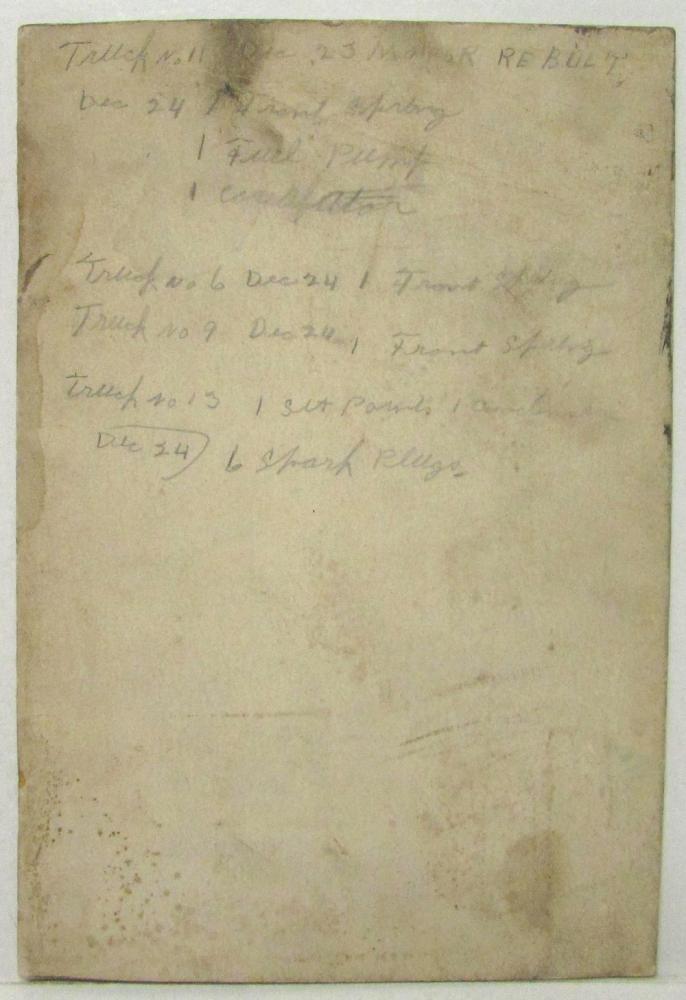 Truck No. 11 Dec 23 Motor REBUILT
Dec 24 1 Front Spring
1 Fuel Pump
1
Truck No 6 Dec 24 1 Front Spring
Truck No 9 Dec 24 1 Front Spring
Truck No 13 1 Set Points 1
Dec 24 6 Spark Plugs